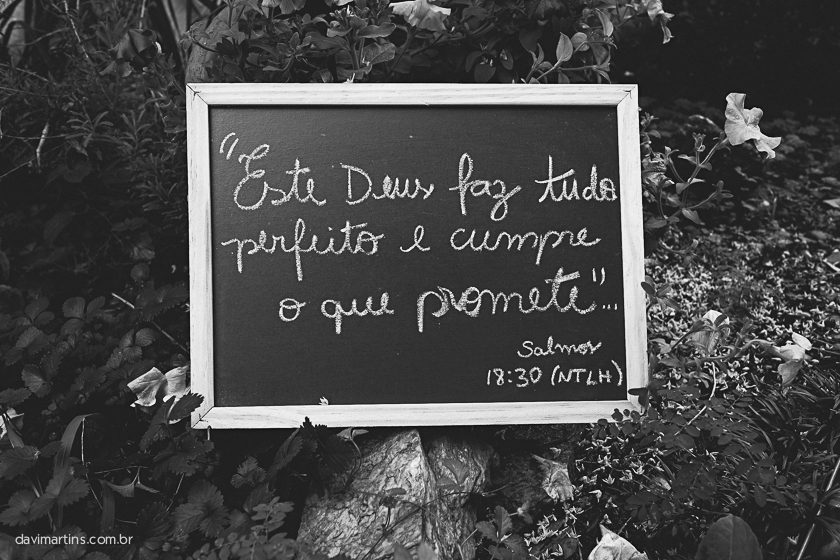 "Este Deus faz tudo
perfeito e cumpre
o que promete"...
Salmos
18:30 (NTLH)
davimartins.com.br